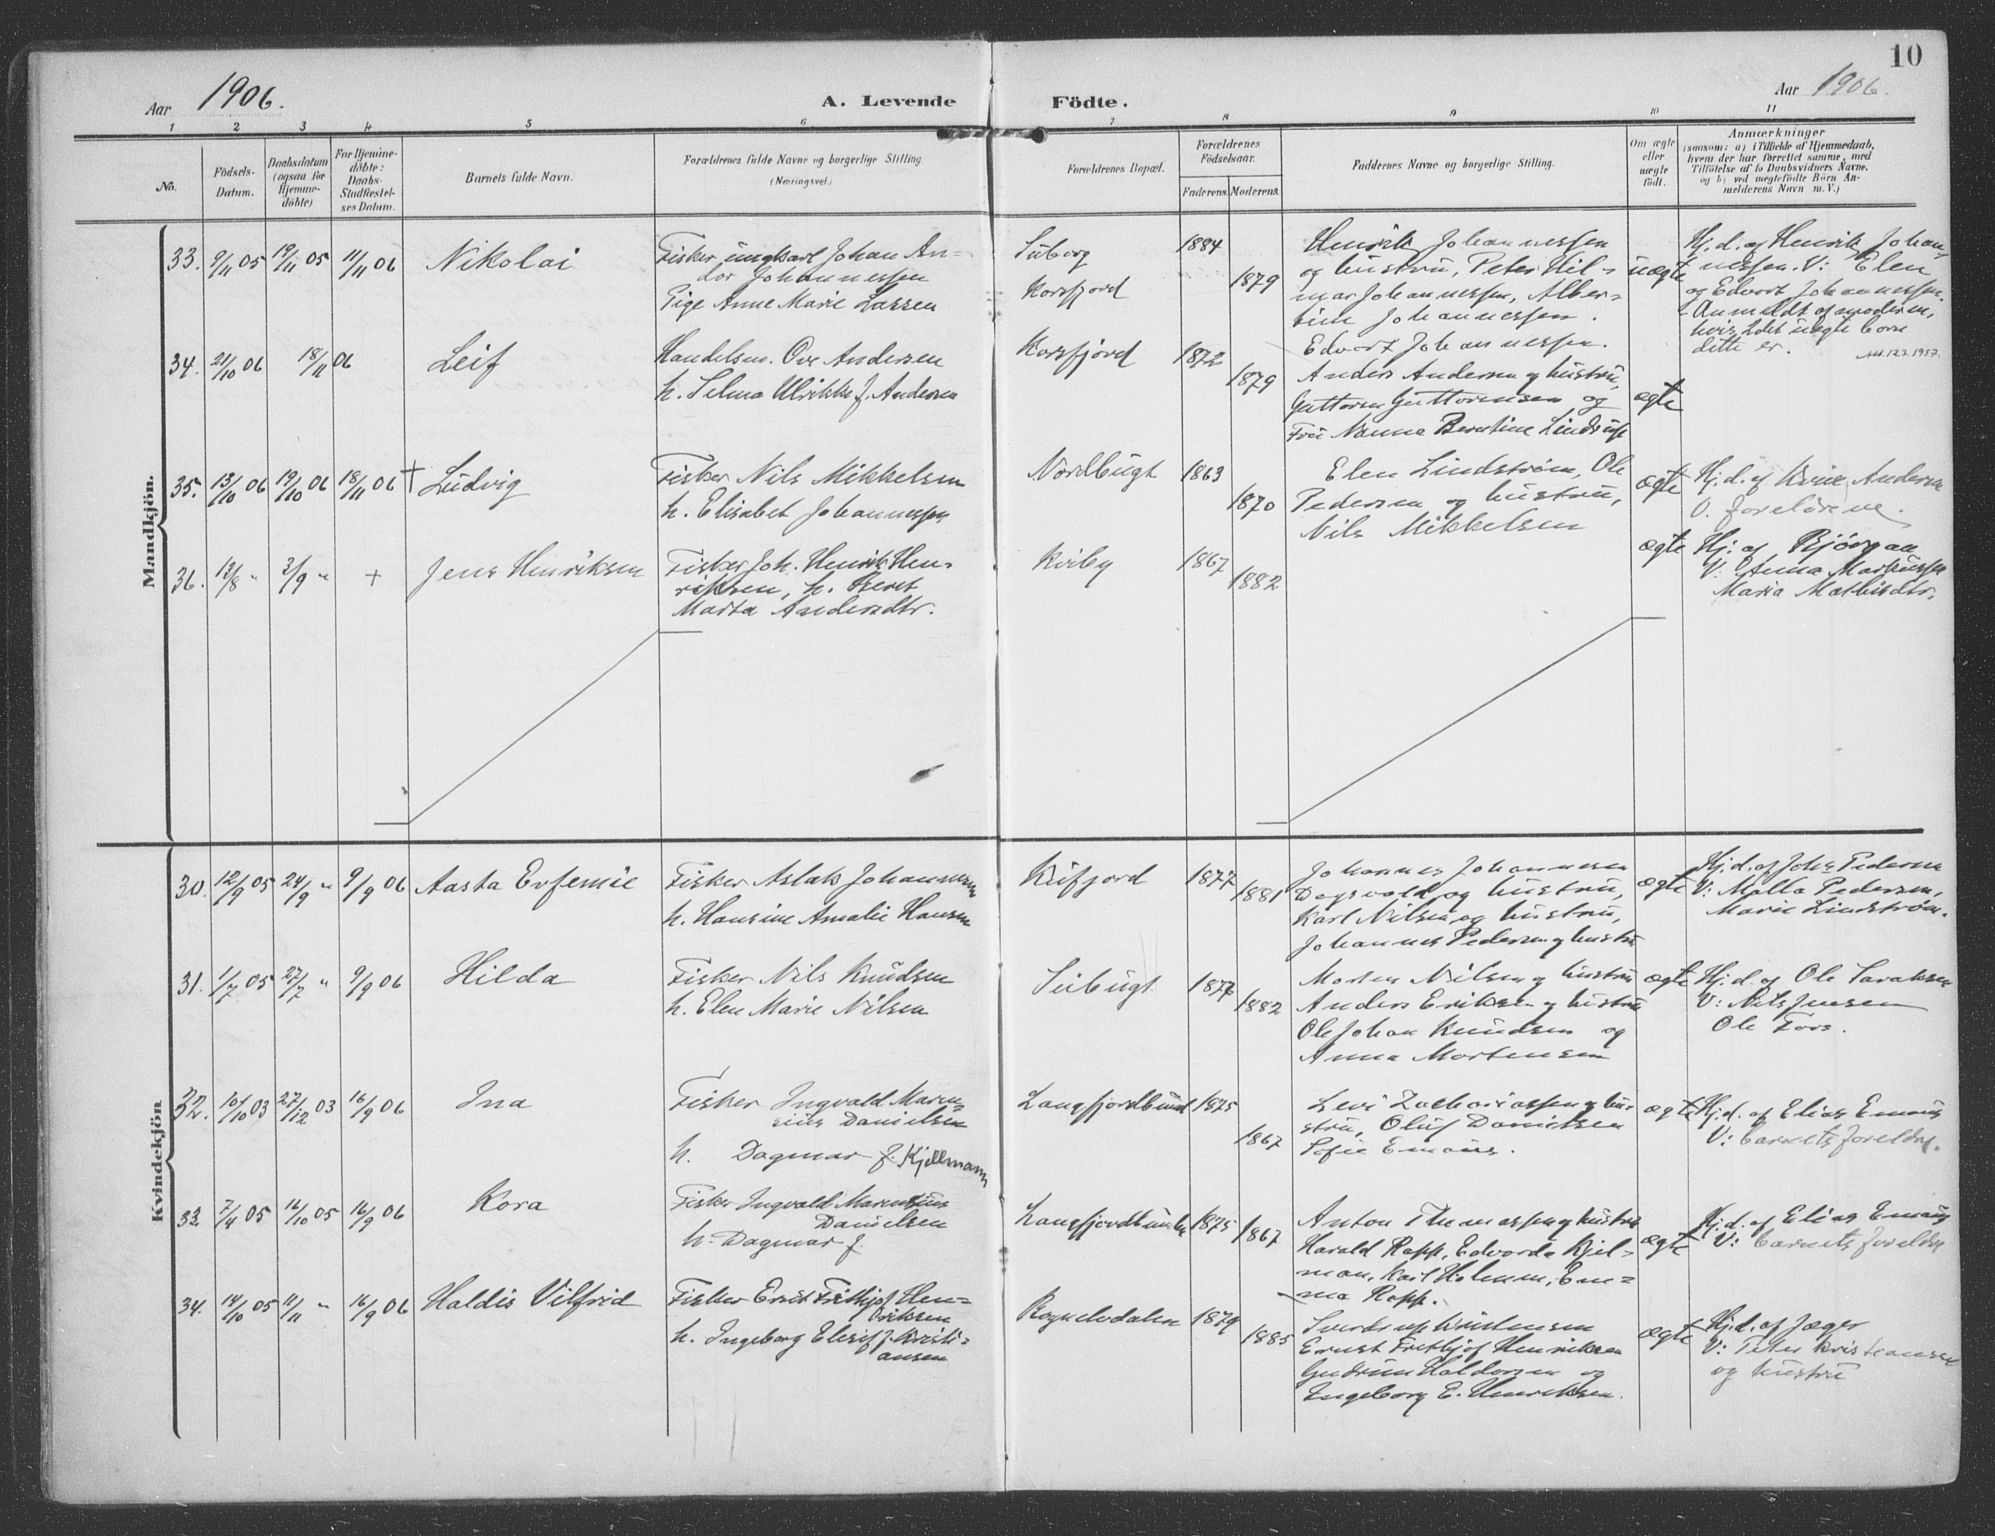 10
Aar 1906.
A. Levende Födte.
Aar 1906.
1 2 3 4 5 6 7 8 9 10 11
No.
Födsels-
Datum.
Daabsdatum
(ogsaa for
Hjemme-
döbte)
For Hjemme-
döbte:
Daabs-
Stadfæstel-
ses Datum.
Barnets fulde Navn.
Forældrenes fulde Navne og borgerlige Stilling.
(Næringsvei.)
Forældrenes Bopæl.
Forældrenes
Födselsaar.
Faderens. Moderens.
Faddernes Navne og borgerlige Stilling.
Om ægte
eller
uægte
födt.
Anmærkninger
(saasom: a) i Tilfælde af Hjemmedaab,
hvem der har forrettet samme, med
Tilföielse af to Daabsvidners Navne.
og b) ved uægtefödte Börn An-
melderens Navn m. V.)
Mandkjön.
33. 9/11 05 19/11 05 11/11 06 Nikolai
Fisker ungkarl Johan An-
dor Johannessen
Pige Anne Marie Larsen
Korsfjord
1884
1879
Henrik Johannessen
og hustru, Peter Hil-
mar Johannessen, Alber-
tine Johannessen.
Edvart Johannessen.
uægte
Hj. d. af Henrik Johan-
nessen. V: Elen
og Edvart Johannessen.
- Anmeldt af moderen,
hvis 2det uægte barn
dette er.
34. 21/10 06 18/11 06 Leif
Handelsm. Ove Andersen
h. Selma Ulrikke f. Andersen
Korsfjord
1872
1879
Anders Andersen og hustru,
Guttorm Guttormsen og
Fru Nanna Berntine Lindrup
ægte
35. 13/10 06 19/10 06 18/11 06 + Ludvig
Fisker Nils Mikkelsen
h. Elisabet Johannessen
Nordbugt
1863
1870
Elen Lindstrøm, Ole
Pedersen og hustru,
Nils Mikkelsen
ægte
Hj. d. af Andersen
V. foreldrene.
36. 13/8 " 3/9 " + Jens Henriksen
Fisker Joh. Henrik Hen-
riksen, h. Beret
Marta Andersdtr.
Kviby
1867
1882
ægte
Hj. af
V: Anna
Maria Mathisdtr.
Kvindekjön
30. 12/9 05 24/9 " 9/9 06 Aasta Evfemie
Fisker Aslak Johannesen
h. Hansine Amalie Hansen
Kufjord
1877
1881
Johannes Johannesen
Dagsvold og hustru,
Karl Nilsen og hustru,
Johannes Pedersen og hustru
ægte
Hj. d. af Johs Pedersen
V: Malla Pedersen,
Marie Lindstrøm.
31. 1/7 05 27/7 " 9/9 06 Hilda
Fisker Nils Knudsen
h. Elen Marie Nilsen
1877
1882
Morten Nilsen og hustru
Anders Eriksen og hustru
Ole Johan Knudsen og
Anna Mortensen
ægte
Hj. d. af Ole Saraksen
V: Nils Jensen
Ole Fors.
32. 10/10 03 27/12 03 16/9 06 Ina
Fisker Ingvald Maren-
sius Danielsen
h. Dagmar f. Kjellmann
Langfjordbund
1875
1867
Levi Zachariassen og hu-
stru, Oluf Danielsen
Sofie Emaus.
ægte
Hj. d. af Elias Emaus
V: barnets foreldre.
33. 7/4 05 16/10 05 16/9 06 Kora
Fisker Ingvald Marensius
Danielsen
h. Dagmar f.
Langfjordbunden
1875
1867
Anton Thomassen og hustru
Harald Rapp, Edvarda Kjel-
man, Karl Holmen, Em-
ma Rapp.
ægte
Hj. d. af Elias Emaus
V: barnets foreldre
34. 14/10 05 11/11 " 16/9 06 Haldis Vilfrid
Fisker Ernst Fritjof Hen-
riksen
h. Ingeborg Elesif f. Kristi-
ansen
Rognelvdalen
1879
1885
Sverdrup Kristensen
Ernst Fritjof Henriksen
Gudrun Haldorsen og
Ingeborg E. Henriksen.
ægte
Hj. d. af Jæger
V: Peter Kristiansen
og hustru